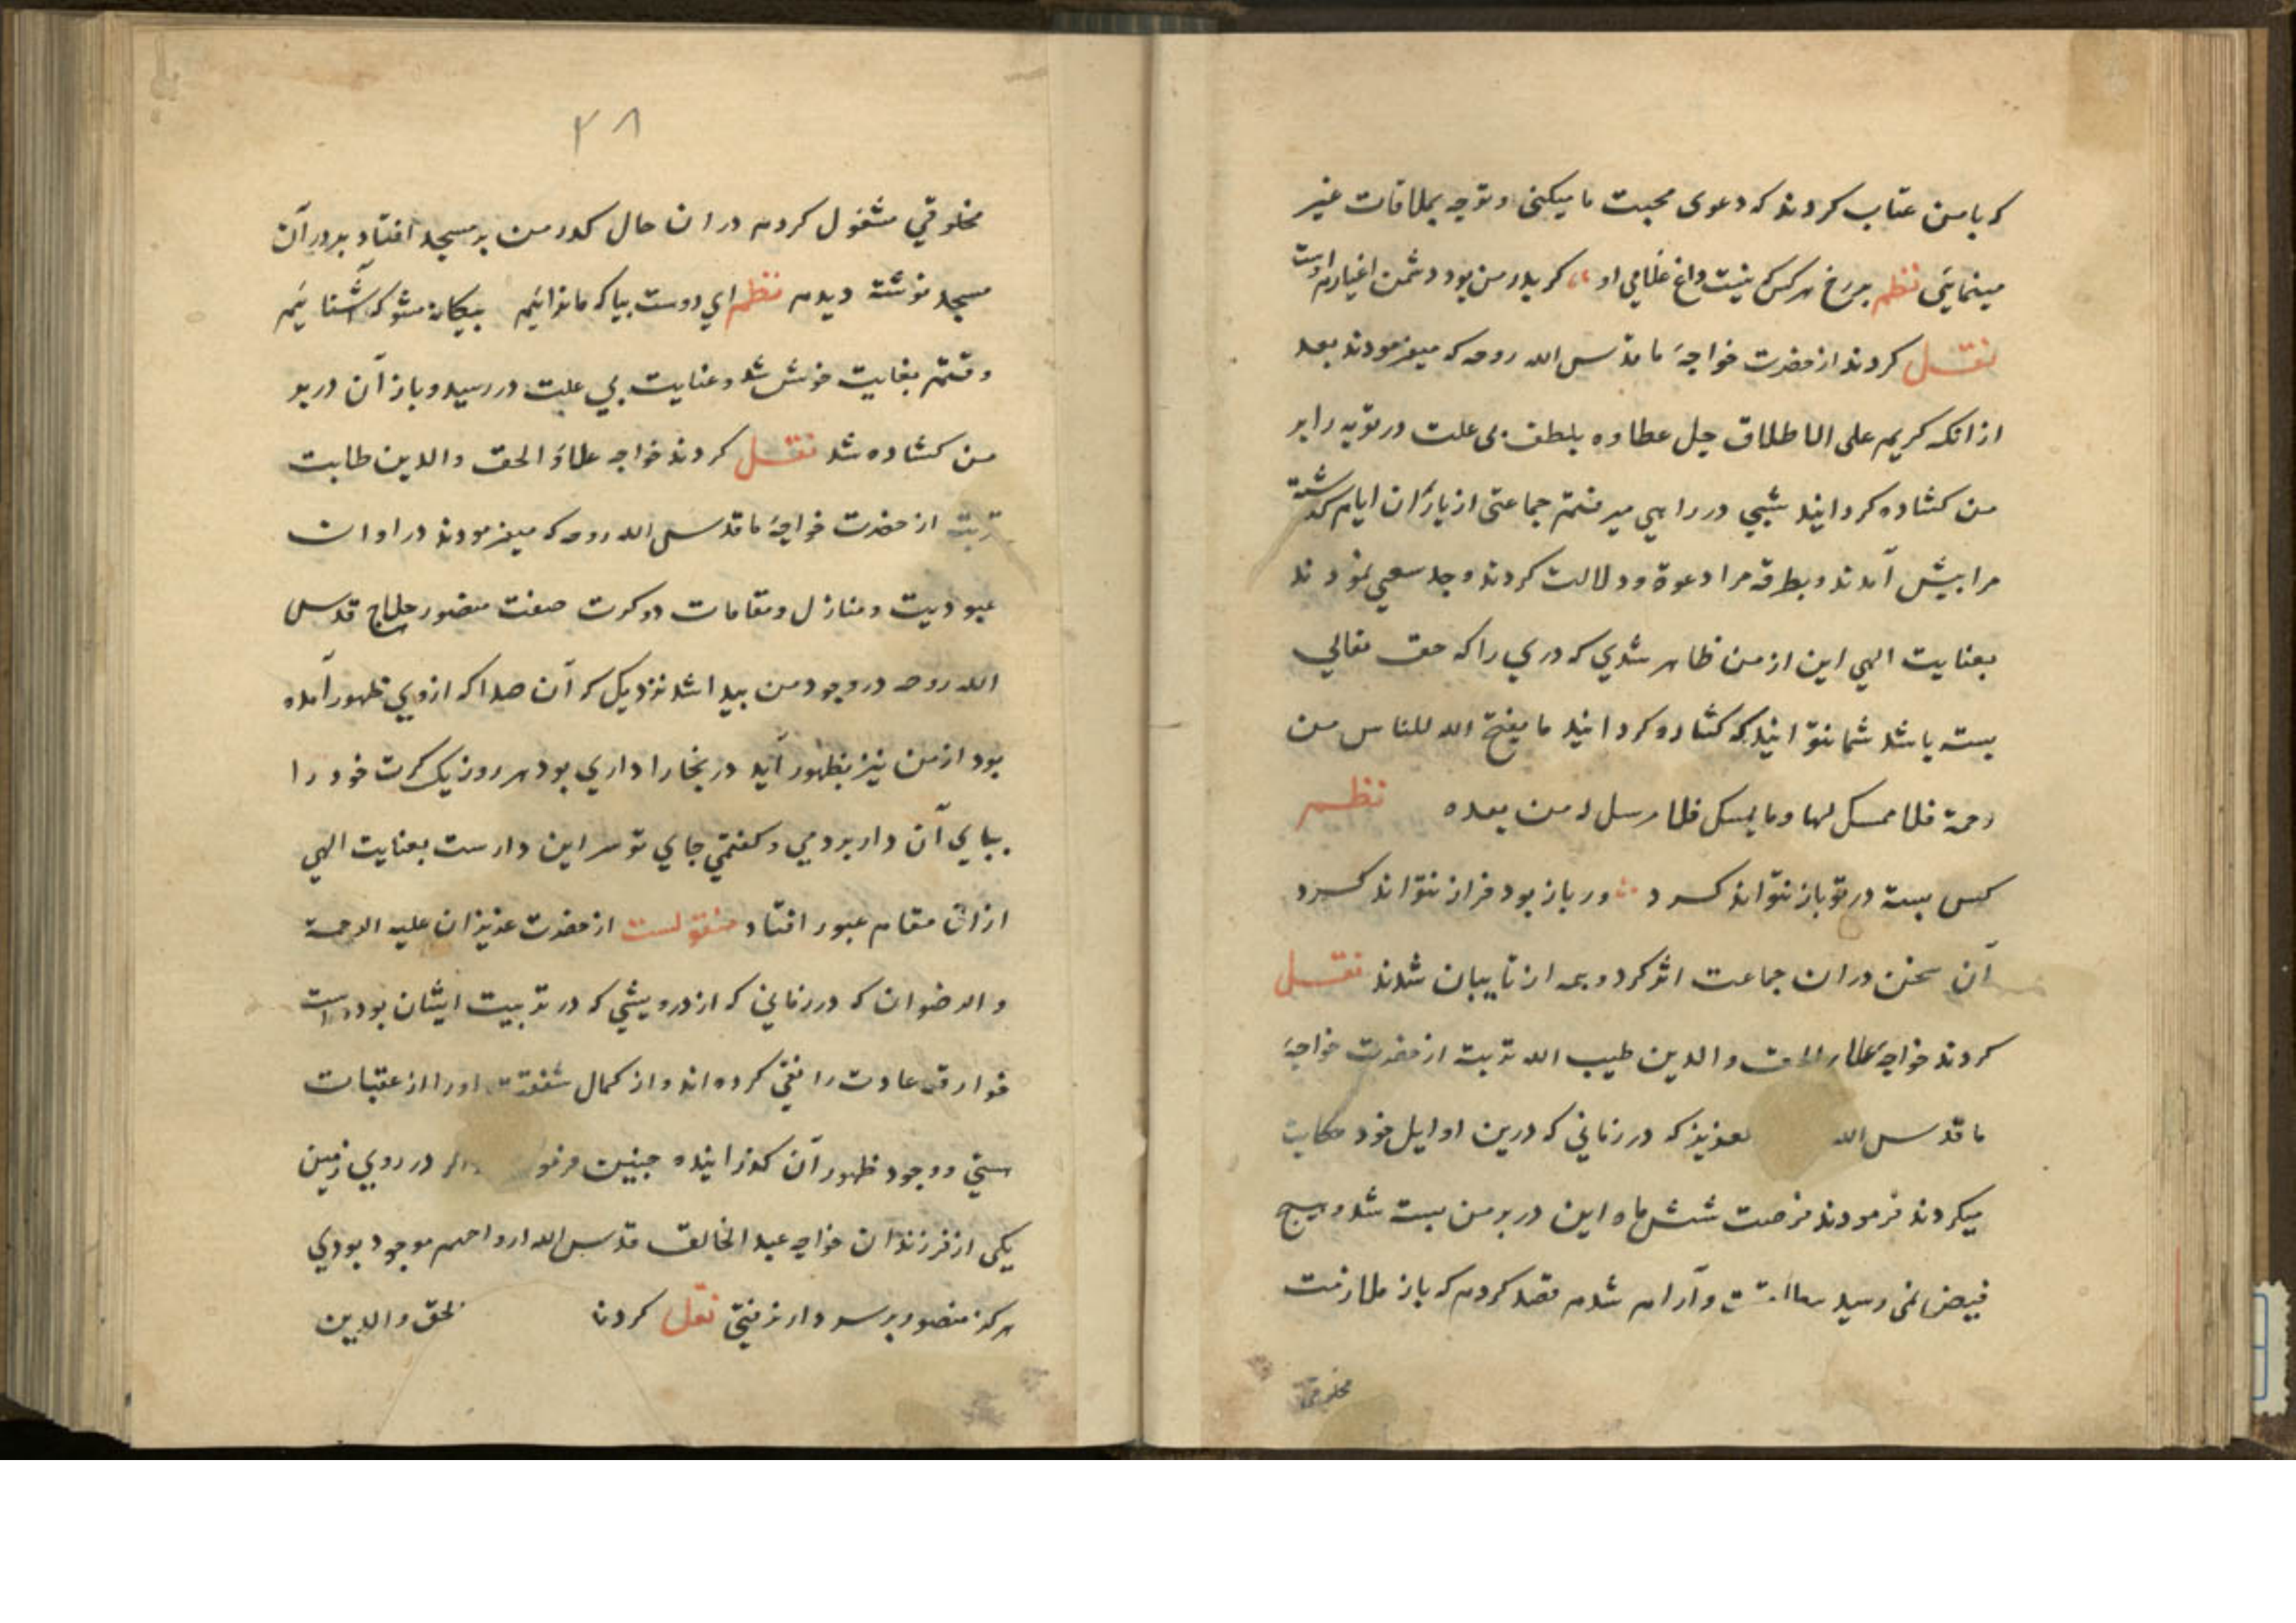 که با من عتاب کردند که دعوی محبت ما میکنی و توجه بملاقات غیر
مینمایی نظم بر رخ هر کس که نیست داغ غلامی او گر پدر من بود دشمن اغیارم اوست
نقل کردند از حضرت خواجۀ ما قدس الله روحه که میفرمودند بعد
از انکه کریم علی الاطلاق جل عطاوه بلطف بی علت در توبه را بر
من کشاده کردانید شبی در راهی میرفتم جماعتی از یاران ایام گذشته
مرا پیش آمدند و بطرفه مرا دعوة و دلالت کردند و جد سعی نمودند
بعنایت الهی این از من ظاهر شدی که دری را که حق تعالی
بسته باشد شما نتوانید که کشاده کردانید ما یفتح الله للناس من
رحمة فلا ممسک لها و ما یمسک فلا مرسل له من بعده نظم
کس بسته در تو باز نتواند کرد ور باز بود فراز نتواند کرد
آن سخن دران جماعت اثر کرد و همه از تایبان شدند نقل
کردند خواجه علاء الحق والدین طیب الله تربته از حضرت خواجۀ
ما قدس الله لعزیز که در زمانی که درین اوایل خود حکایت
میکردند فرمودند فرصت شش ماه این در بر من بسته شد و هیچ
فیض نمی رسید و آرام شدم قصد کردم که باز ملازمت
مخلوقی
۲۸
مخلوقی مشغول کردم در ان حال گذر من بر مسجد افتاد بر در آن
مسجد نوشته دیدم نظم ای دوست بیا که ما ترائیم بیکانه مشو که آشنائیم
وقتم بغایت خوش شد و عنایت بی علت در رسید و باز آن در بر
من کشاده شد نقل کردند خواجه علاؤ الحق والدین طابت
تربته از حضرت خواجۀ ما قدس الله روحه که میفرمودند در اوان
عبودیت و منازل و مقامات دو کرت صفت منصور حلاج قدس
الله روحه در وجود من پیدا شد نزدیک که آن صدا که از وی ظهور آمده
بود از من نیز بظهور آید در بخارا داری بود هر روز یک کرت خود را
بپای آن دار بردمی و گفتمی جای تو سر این دارست بعنایت الهی
از ان مقام عبور افتاد منقولست از حضرت عزیزان علیه الرحمة
والرضوان که در زمانی که از درویشی که در تربیت ایشان بوده است
خوارق عادت را نفی کرده اند و از کمال شفقت او را از عقبات
هستی و وجود ظهور آن گذرانیده چنین در روی زمین
یکی از فرزندان خواجه عبد الخالق قدس الله ارواحهم موجود بودی
هرگز منصور بر سر دار نرفتی نقل کردند لحق والدین